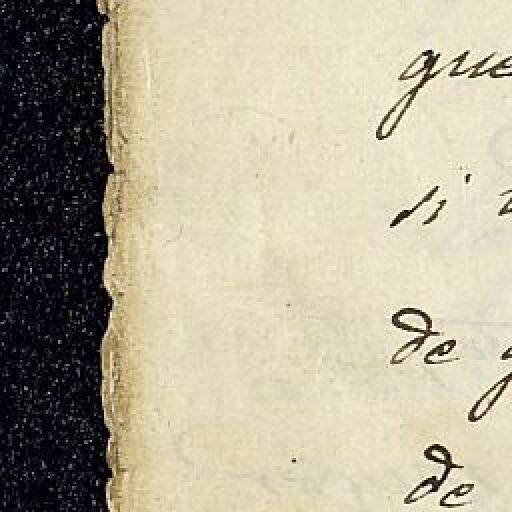 que
si
de
de